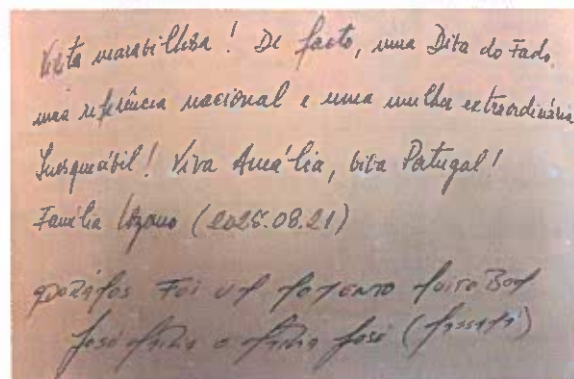 Visita maravilhosa! De facto, uma Diva do Fado,
uma referência nacional e uma mulher extraordinária
Inesquecível! Viva Amália, viva Portugal!
Família Lozano (2025.08.21)
Foi um momento muito Bom
José Maria e Maria José (Massamá)